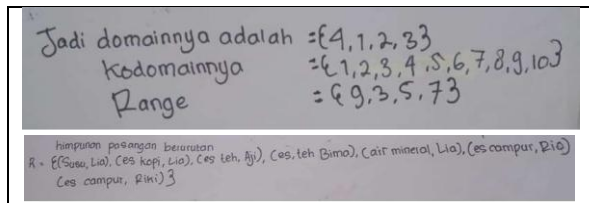 Jadi domainnya adalah = {4,1,2,3}
Kodomainnya = {1,2,3,4,5,6,7,8,9,10}
Range = {9,3,5,7}
himpunan pasangan berurutan
R = {(Susu, Lia), (es kopi, Lia), (es teh, Aji), (es, teh Bima), (air mineral, Lia), (es campur, Rio)
(es campur, Rini)}